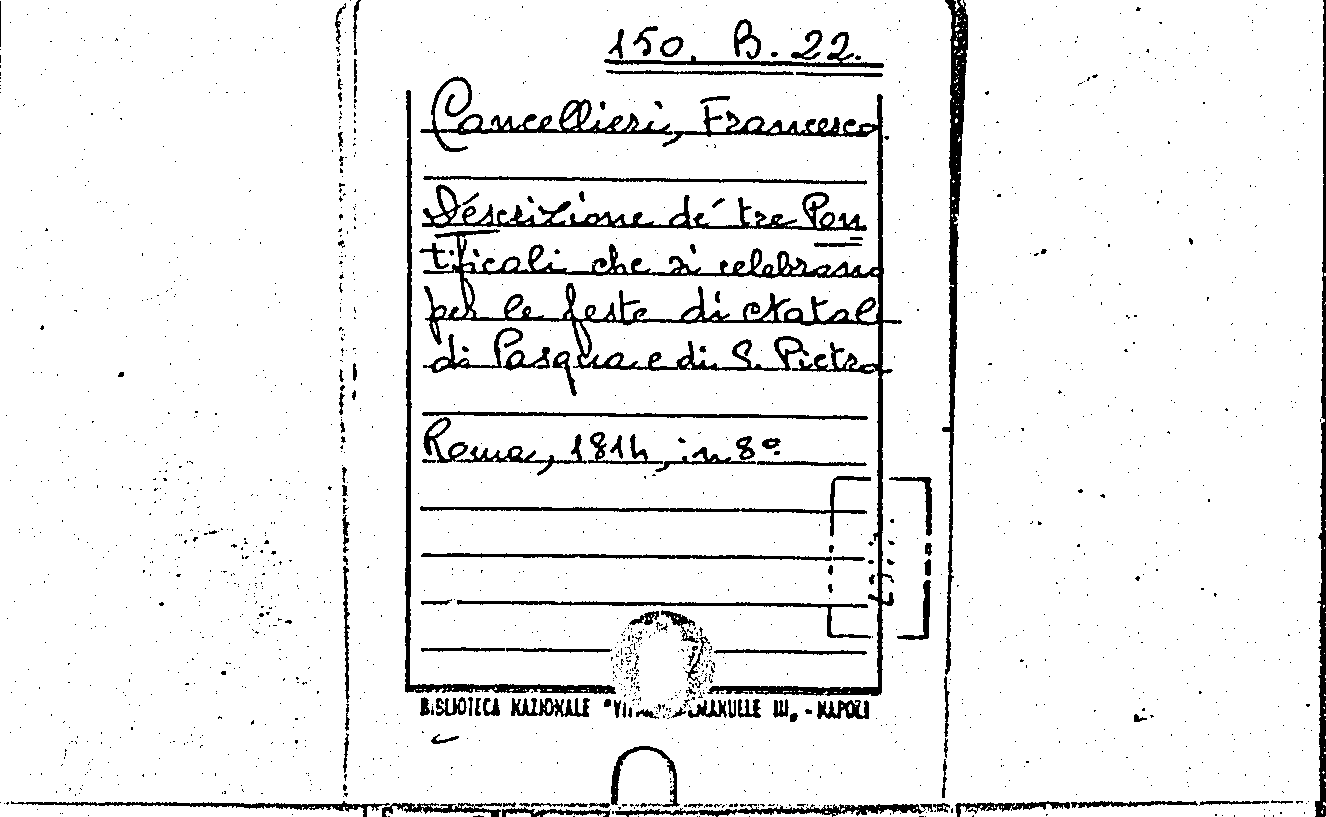 150. B. 22.
Cancellieri, Francesco.
Descrizione de' tre Pon
tificali che si celebrano
per le feste di Natale
di Pasqua e di S. Pietro
Roma, 1814, in 8º
BIBLIOTECA NAZIONALE "VITT EMANUELE III„ - NAPOLI